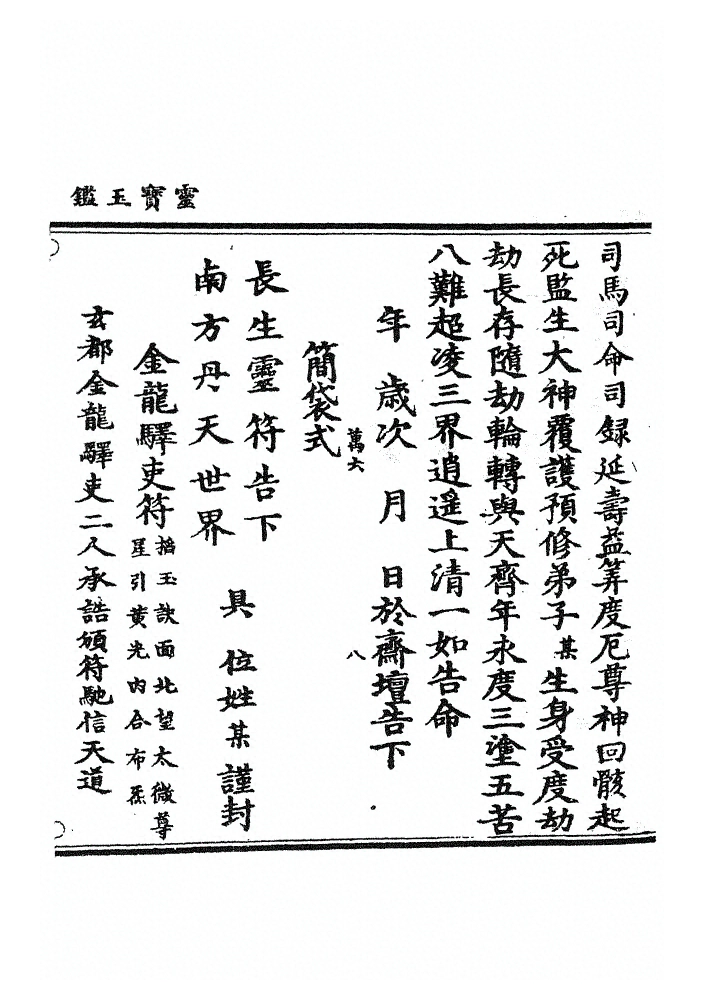 靈寶玉鑑
司馬司命司録延壽益筭度厄尊神回骸起
死監生大神覆護預修弟子某生身受度劫
劫長存隨劫輪轉與天齊年永度三塗五苦
八難超凌三界逍遥上清一如告命
年歲次月日於齋壇告下
萬六
八
簡袋式
長生靈符告下
南方丹天世界
具位姓某謹封
金龍驛吏符
掐玉訣面北望太微尊
星引黄光内合布炁
玄都金龍驛吏二人承誥頒符馳信天道